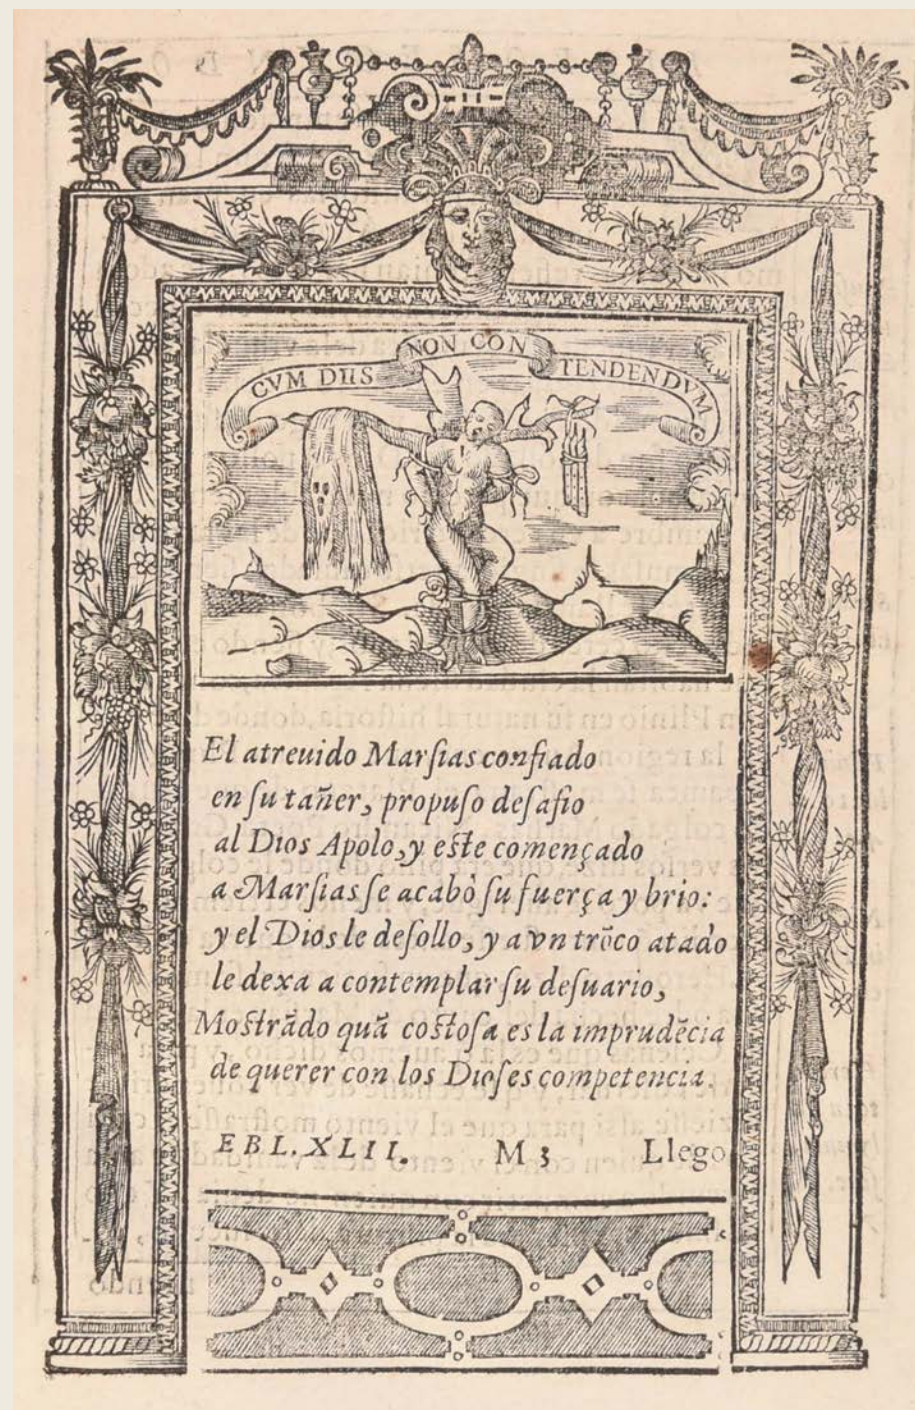 CVM DIIS NON CON TENDENDVM
El atreuido Marſias confiado
en ſu tañer, propuſo deſafio
al Dios Apolo, y eſte començado
a Marſias ſe acabò ſu fuerça y brio:
y el Dios le deſollo, y a vn trõco atado
le dexa a contemplar ſu deſuario,
Moſtrãdo quã coſtoſa es la imprudẽcia
de querer con los Dioſes competencia.
EBL. XLII. M 3 Llego